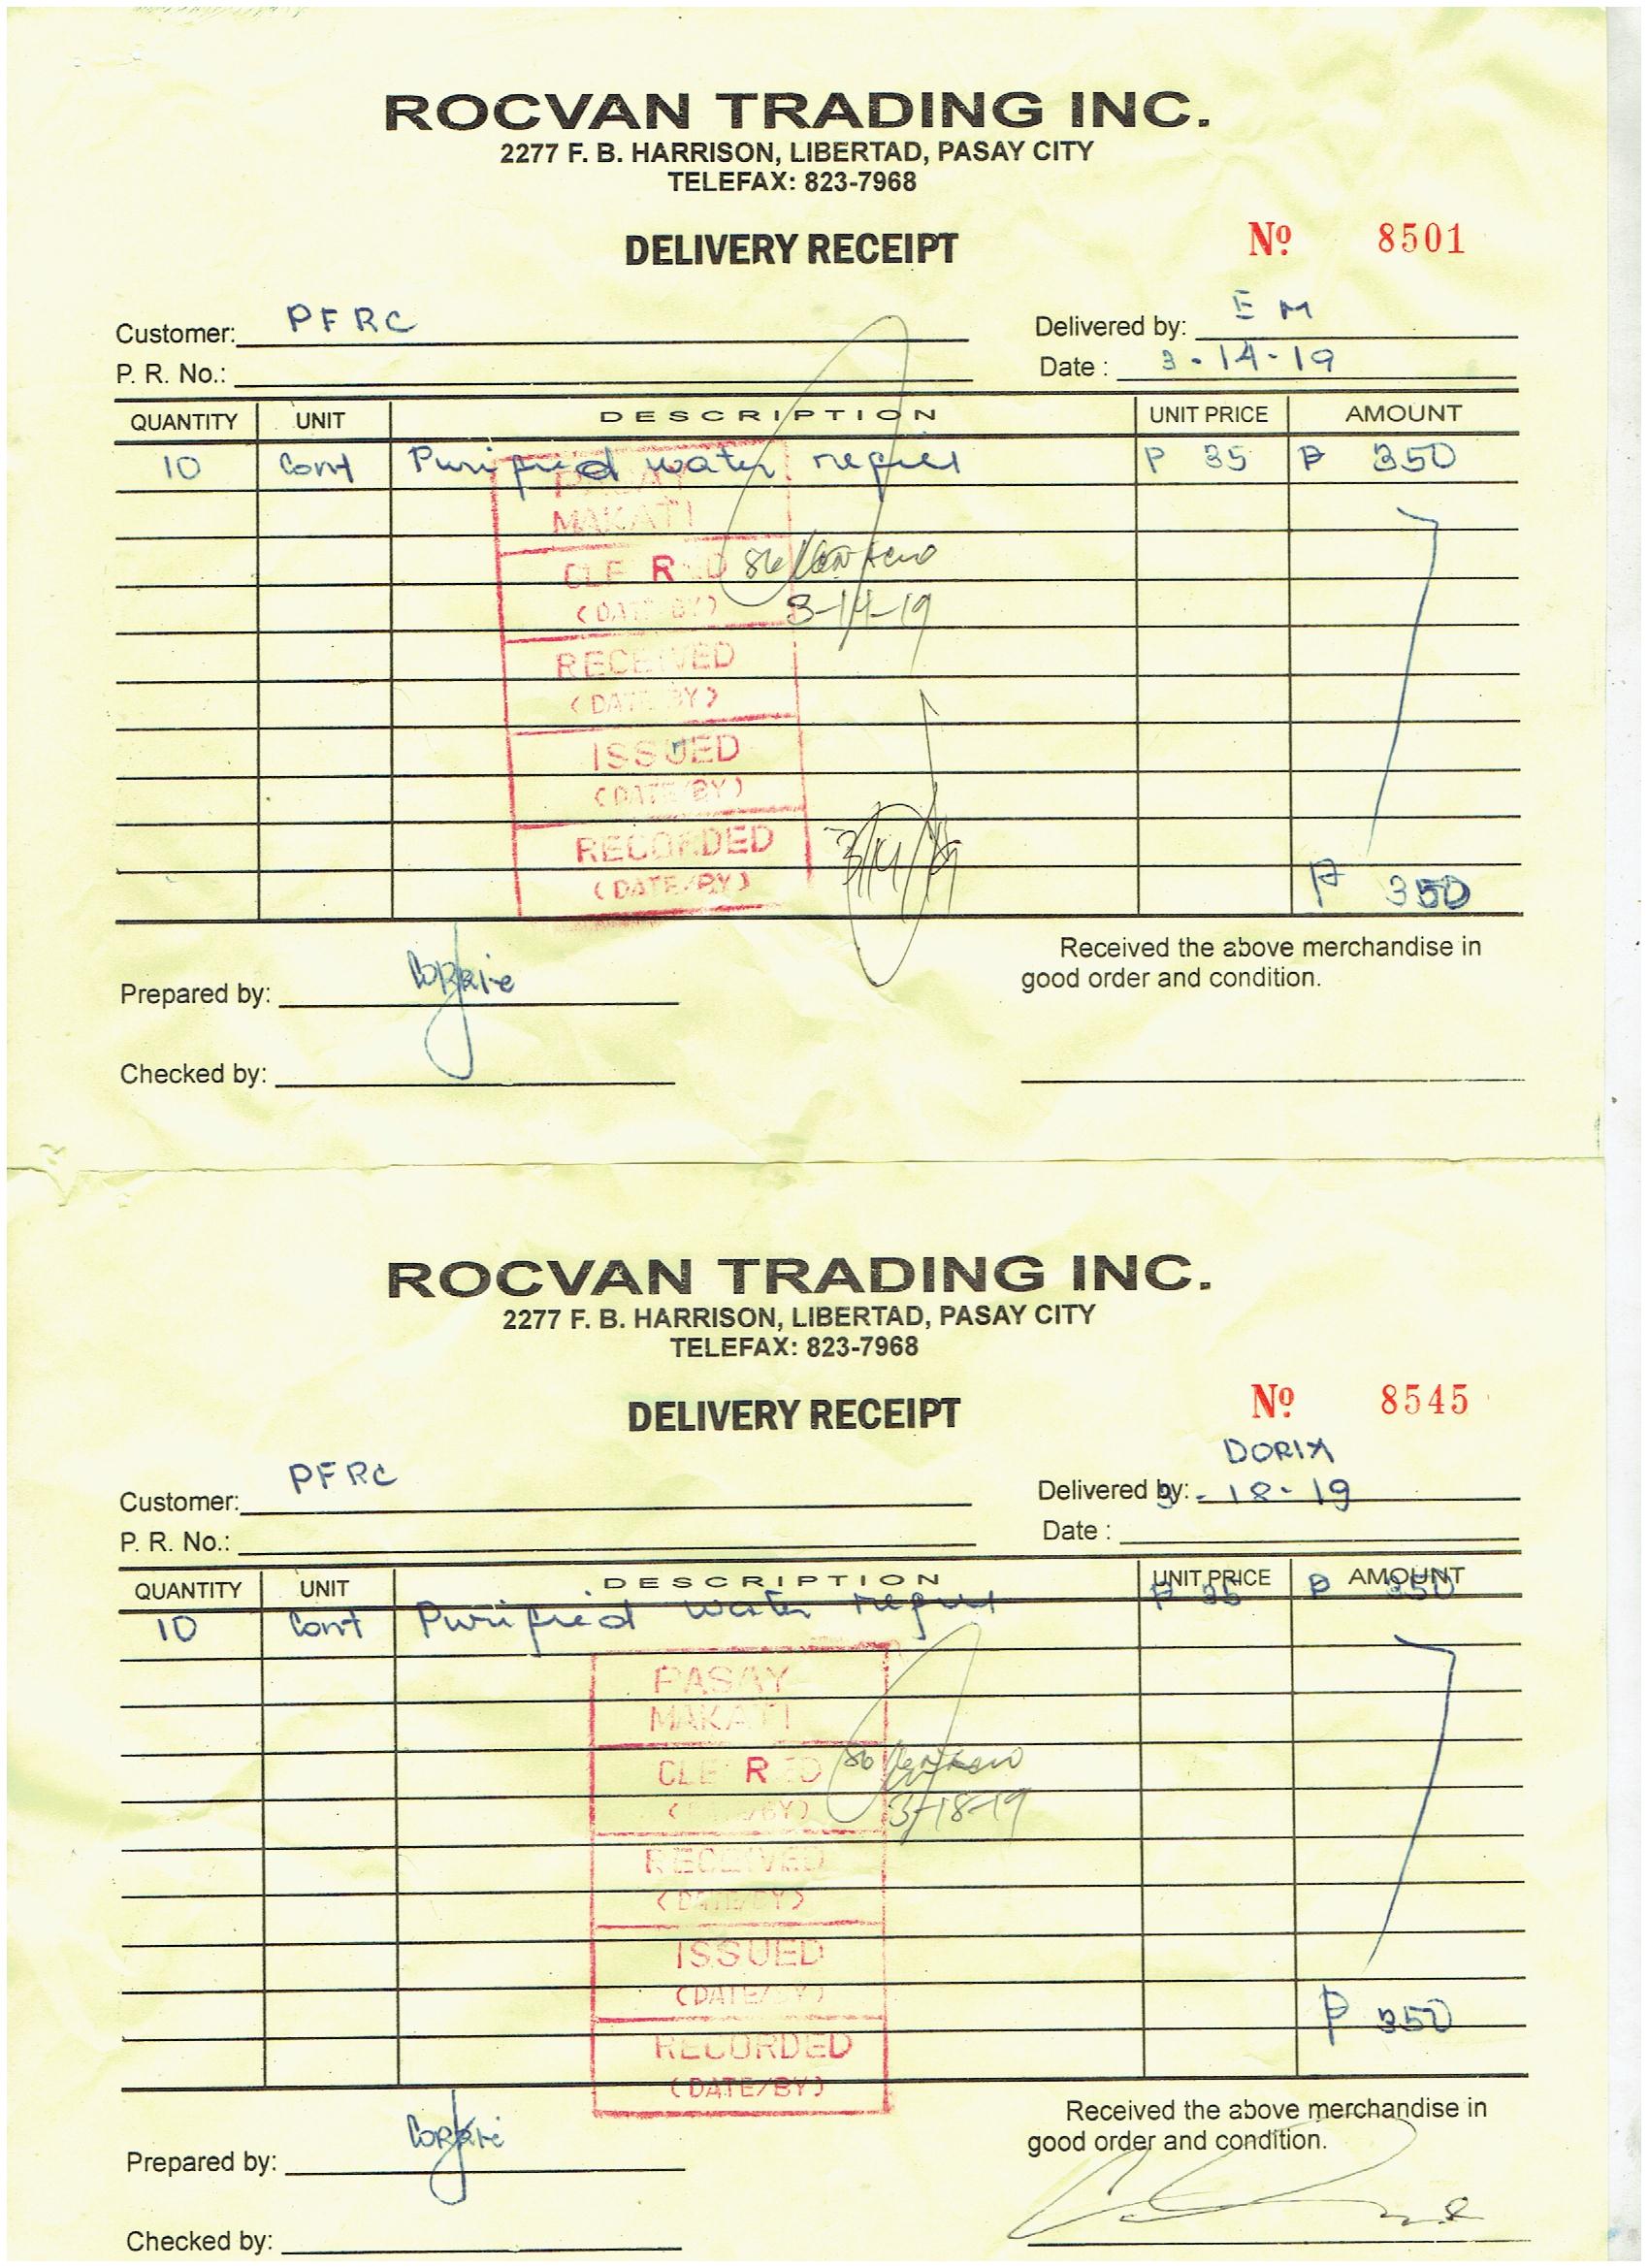 ROCVAN TRADING INC.
2277 F. B. HARRISON, LIBERTAD, PASAY CITY
TELEFAX: 823-7968
DELIVERY RECEIPT
Nº 8501
Customer: PFRC
Delivered by: EM
P. R. No.:
Date : 3-14-19
QUANTITY UNIT DESCRIPTION UNIT PRICE AMOUNT
10 Cont Purified water refill P 35 P 350
PASAY
MAKATI
CLEARED
(DATE/BY) 3-14-19
RECEIVED
(DATE/BY)
ISSUED
(DATE/BY)
RECORDED
(DATE/BY)
P 350
Received the above merchandise in
good order and condition.
Prepared by:
Checked by:
ROCVAN TRADING INC.
2277 F. B. HARRISON, LIBERTAD, PASAY CITY
TELEFAX: 823-7968
DELIVERY RECEIPT
Nº 8545
Customer: PFRC
Delivered by:
P. R. No.:
Date : 3-18-19
QUANTITY UNIT DESCRIPTION UNIT PRICE AMOUNT
10 Cont Purified water refill P 35 P 350
PASAY
MAKATI
CLEARED
(DATE/BY) 3-18-19
RECEIVED
(DATE/BY)
ISSUED
(DATE/BY)
RECORDED
(DATE/BY)
P 350
Received the above merchandise in
good order and condition.
Prepared by:
Checked by: